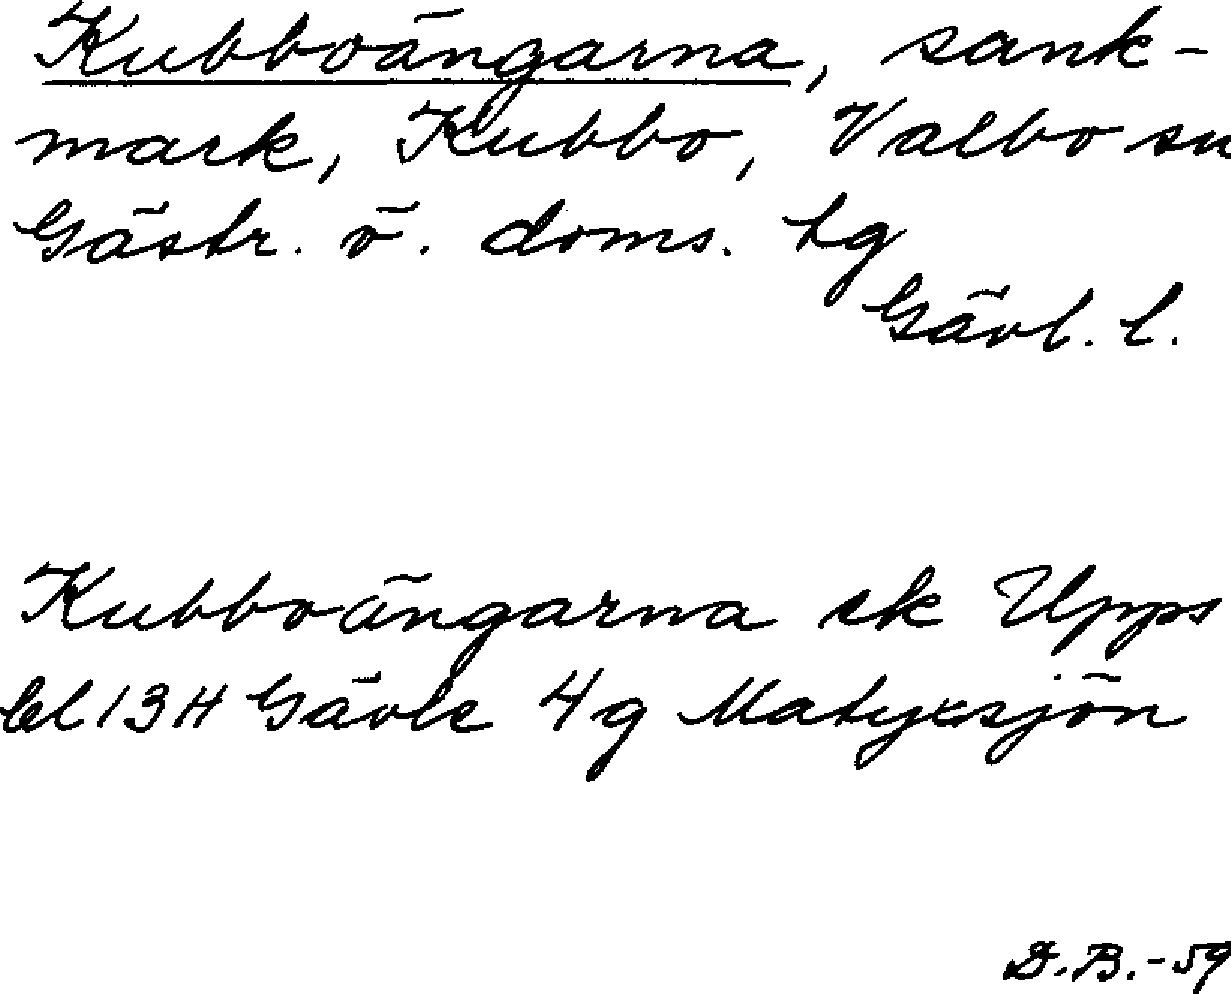 Kubboängarna, sank-
mark, Kubbo, Valbo sn
Gästr. ö. doms. tg
Gävl. l.
Kubboängarna ek Upps
bl 13H Gävle 4g Matyxsjön
D.B.-59